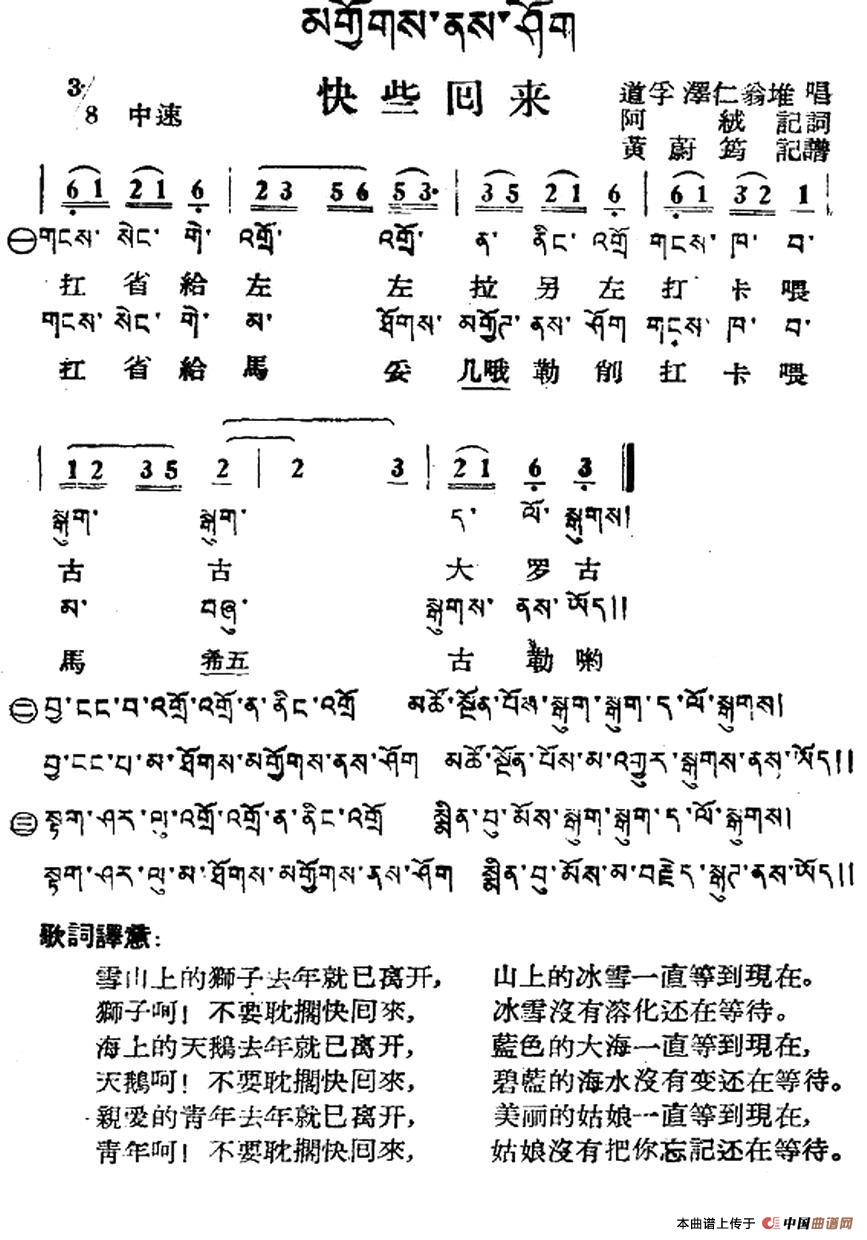 མགྱོགས་ནས་ཤོག
快些囘来
3/8 中速
道孚 澤仁翁堆 唱
阿絨 記詞
黃蔚筠 記譜
6 1 2 1 6 | 2 3 5 6 5 3· | 3 5 2 1 6 | 6 1 3 2 1 |
㊀གངས་ སེང་ གེ་ འགྲོ་ འགྲོ་ ན་ ནིང་ འགྲོ གངས་ ཁ་ བ་
扛 省 給 左 左 拉 另 左 打 卡 喂
གངས་ སེང་ གེ་ མ་ ཐོགས་ མགྱོཊ་ ནས་ ཤོག གངས་ ཁ་ བ་
扛 省 給 馬 妥 几哦 勒 削 扛 卡 喂
| 1 2 3 5 2 | 2 3 | 2 1 6 3 ‖
སྐུག་ སྐུག་ ད་ ལོ་ སྐུགས།
古 古 大 罗 古
མ་ བཞུ་ སྐུགས་ ནས་ ཡོད།།
馬 希五 古 勒 喲
㊁བྱ་ངང་བ་འགྲོ་འགྲོ་ན་ནིང་འགྲོ མཚོ་སྔོན་པོས་སྐུག་སྐུག་ད་ལོ་སྐུགས།
བྱ་ངང་པ་མ་ཐོགས་མགྱོགས་ནས་ཤོག མཚོ་སྔོན་པོས་མ་འགྱུར་སྐུགས་ནས་ཡོད།།
㊂སྟག་ཤར་ལུ་འགྲོ་འགྲོ་ན་ནིང་འགྲོ སྨིན་བུ་མོས་སྐུག་སྐུག་ད་ལོ་སྐུགས།
སྟག་ཤར་ལུ་མ་ཐོགས་མགྱོགས་ནས་ཤོག སྨིན་བུ་མོས་མ་བརྗེད་སྐུཊ་ནས་ཡོད།།
歌詞譯意:
雪山上的獅子去年就已离开, 山上的冰雪一直等到現在。
獅子呵! 不要耽擱快囘來, 冰雪沒有溶化还在等待。
海上的天鵝去年就已离开, 藍色的大海一直等到現在,
天鵝呵! 不要耽擱快囘來, 碧藍的海水沒有变还在等待。
親愛的青年去年就已离开, 美丽的姑娘一直等到現在,
青年呵! 不要耽擱快囘來, 姑娘沒有把你忘記还在等待。
本曲谱上传于 中国曲谱网